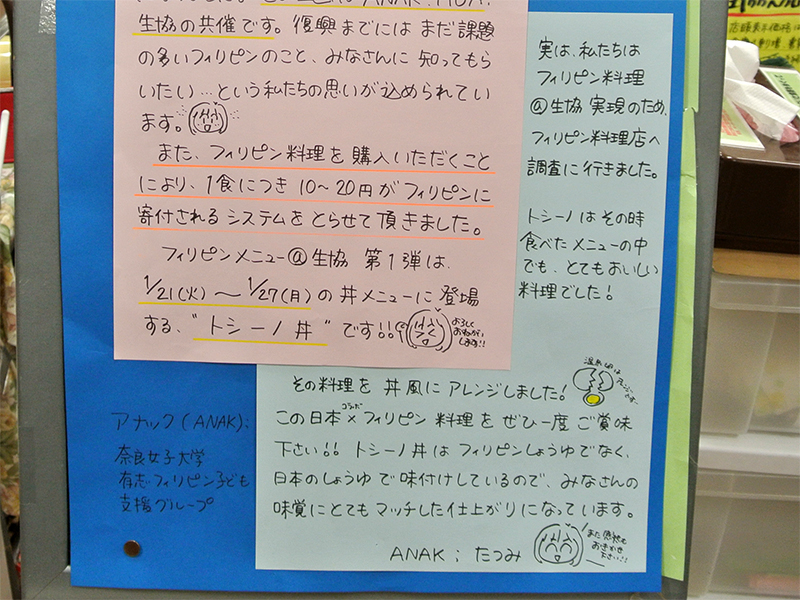 生協の共催です。復興までにはまだ課題
の多いフィリピンのこと、みなさんに知ってもら
いたい…という私たちの思いが込められてい
ます。
また、フィリピン料理を購入いただくこと
により、1食につき10〜20円がフィリピンに
寄付されるシステムをとらせて頂きました。
フィリピンメニュー@生協 第1弾は、
1/21(火)〜1/27(月)の丼メニューに登場
する、"トシーノ丼"です!!
よろしく
おねがい
します!!
実は、私たちは
フィリピン料理
@生協 実現のため、
フィリピン料理店へ
調査に行きました。
トシーノはその時
食べたメニューの中
でも、とてもおいしい
料理でした!
その料理を丼風にアレンジしました!
温泉卵は
コラボ
この日本×フィリピン料理をぜひ一度ご賞味
下さい!! トシーノ丼はフィリピンしょうゆでなく、
日本のしょうゆで味付けしているので、みなさんの
味覚にとてもマッチした仕上がりになっています。
ANAK: たつみ
また感想も
おきかせ
下さい!!
アナック(ANAK):
奈良女子大学
有志フィリピン子ども
支援グループ